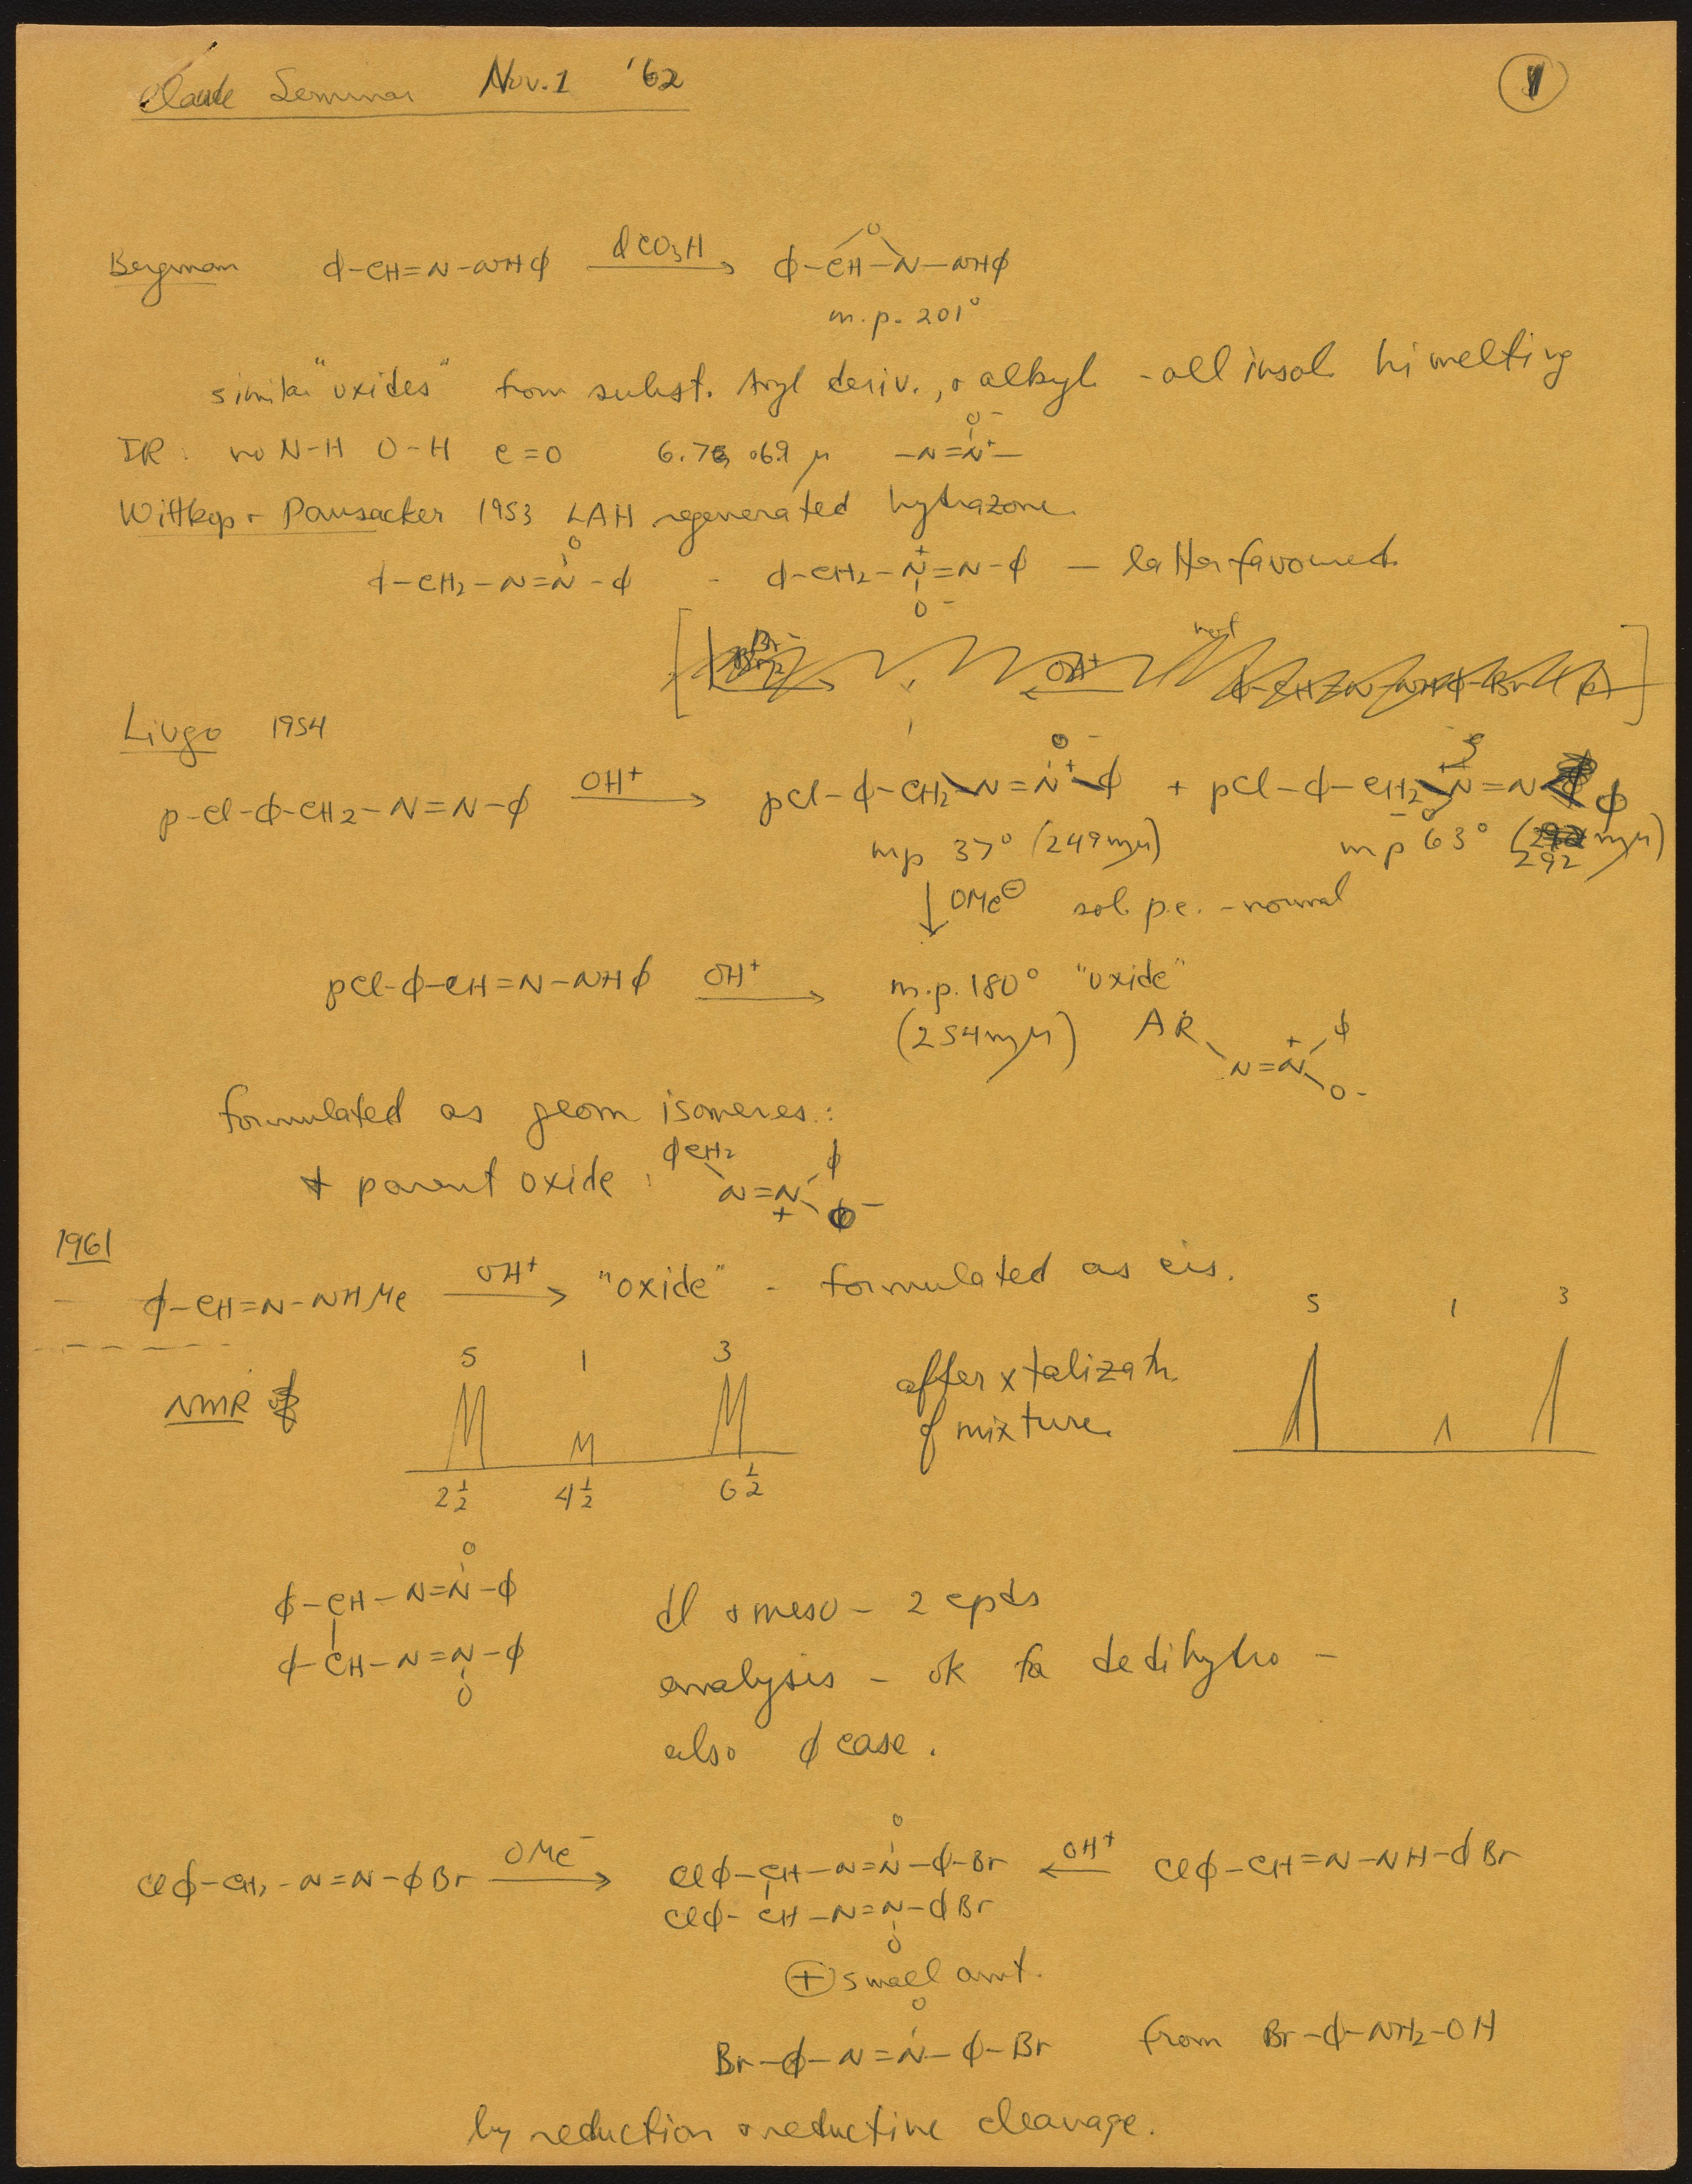 Claude Seminar Nov. 1 '62
1
Bergmann ϕ-CH=N-NHϕ ϕCO3H → ϕ-CH-N-NHϕ
O
m.p. 201°
similar "oxides" from subst. Aryl deriv., + alkyl - all insol. hi melting
IR: no N-H O-H C=O 6.76, .069 μ -N=N+-
O-
Wittkop + Pausacker 1953 LAH regenerated hydrazone.
O
ϕ-CH2-N=N-ϕ - ϕ-CH2-N+=N-ϕ - latter favoured.
O-
Livgo 1954
p-Cl-ϕ-CH2-N=N-ϕ OH+ → pCl-ϕ-CH2-N=N+-ϕ + pCl-ϕ-CH2-N+=N-ϕ
O-
mp 37° (249 mμ) mp 63° (292 mμ)
↓ OMe⊖ sol. p.e. - normal
pCl-ϕ-CH=N-NHϕ OH+ → m.p. 180° "oxide"
(254 mμ) AR N=N+ ϕ O-
formulated as geom isomeres:
+ parent oxide: ϕCH2 N=N+ ϕ O-
1961
ϕ-CH=N-NHMe OH+ → "oxide" - formulated as cis.
NMR of
5 1 3
2½ 4½ 6½
after xtalizatn.
of mixture.
5 1 3
O
ϕ-CH-N=N-ϕ
ϕ-CH-N=N-ϕ
O
dl + meso - 2 cpds
analysis - ok for dedihydro -
also ϕ case.
O
Clϕ-CH2-N=N-ϕBr OMe- → Clϕ-CH-N=N-ϕ-Br ← OH+ Clϕ-CH=N-NH-ϕBr
Clϕ-CH-N=N-ϕBr
O
⊕ small amt.
O
Br-ϕ-N=N-ϕ-Br from Br-ϕ-NH2-OH
by reduction + reductive cleavage.